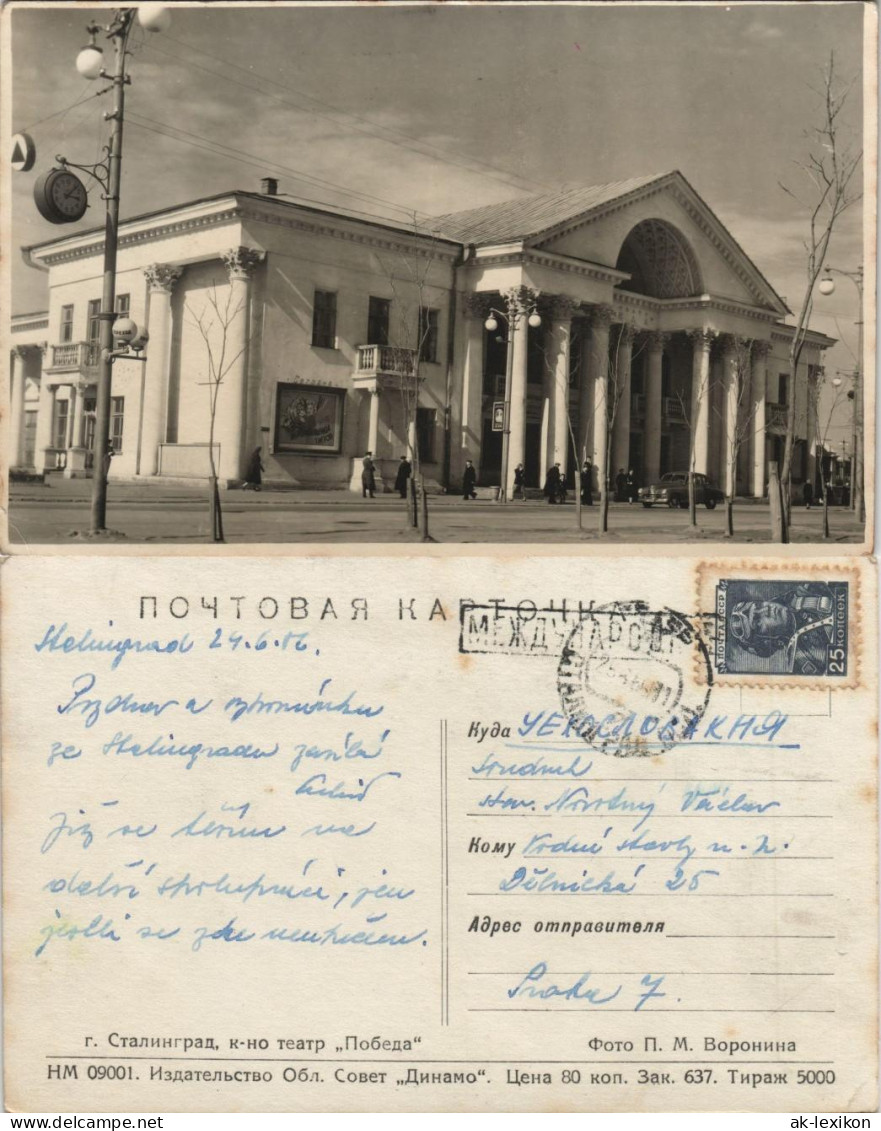 ПОЧТОВАЯ КАРТОЧКА
МЕЖДУНАРОД
ПОЧТА СССР
25 КОПЕЕК
Stalingrad 24.6.
Pozdrav a
ze Stalingradu zasílá
Již se těším na
další spolupráci, jen
jestli se zde
Куда ЧЕХОСЛОВАКИЯ
Soudruh
stav. Novotný Václav
Кому Vodní stavby n.p.
Dělnická 25
Адрес отправителя
Praha 7.
г. Сталинград, к-но театр „Победа“
Фото П. М. Воронина
НМ 09001. Издательство Обл. Совет „Динамо“. Цена 80 коп. Зак. 637. Тираж 5000
ak-lexikon